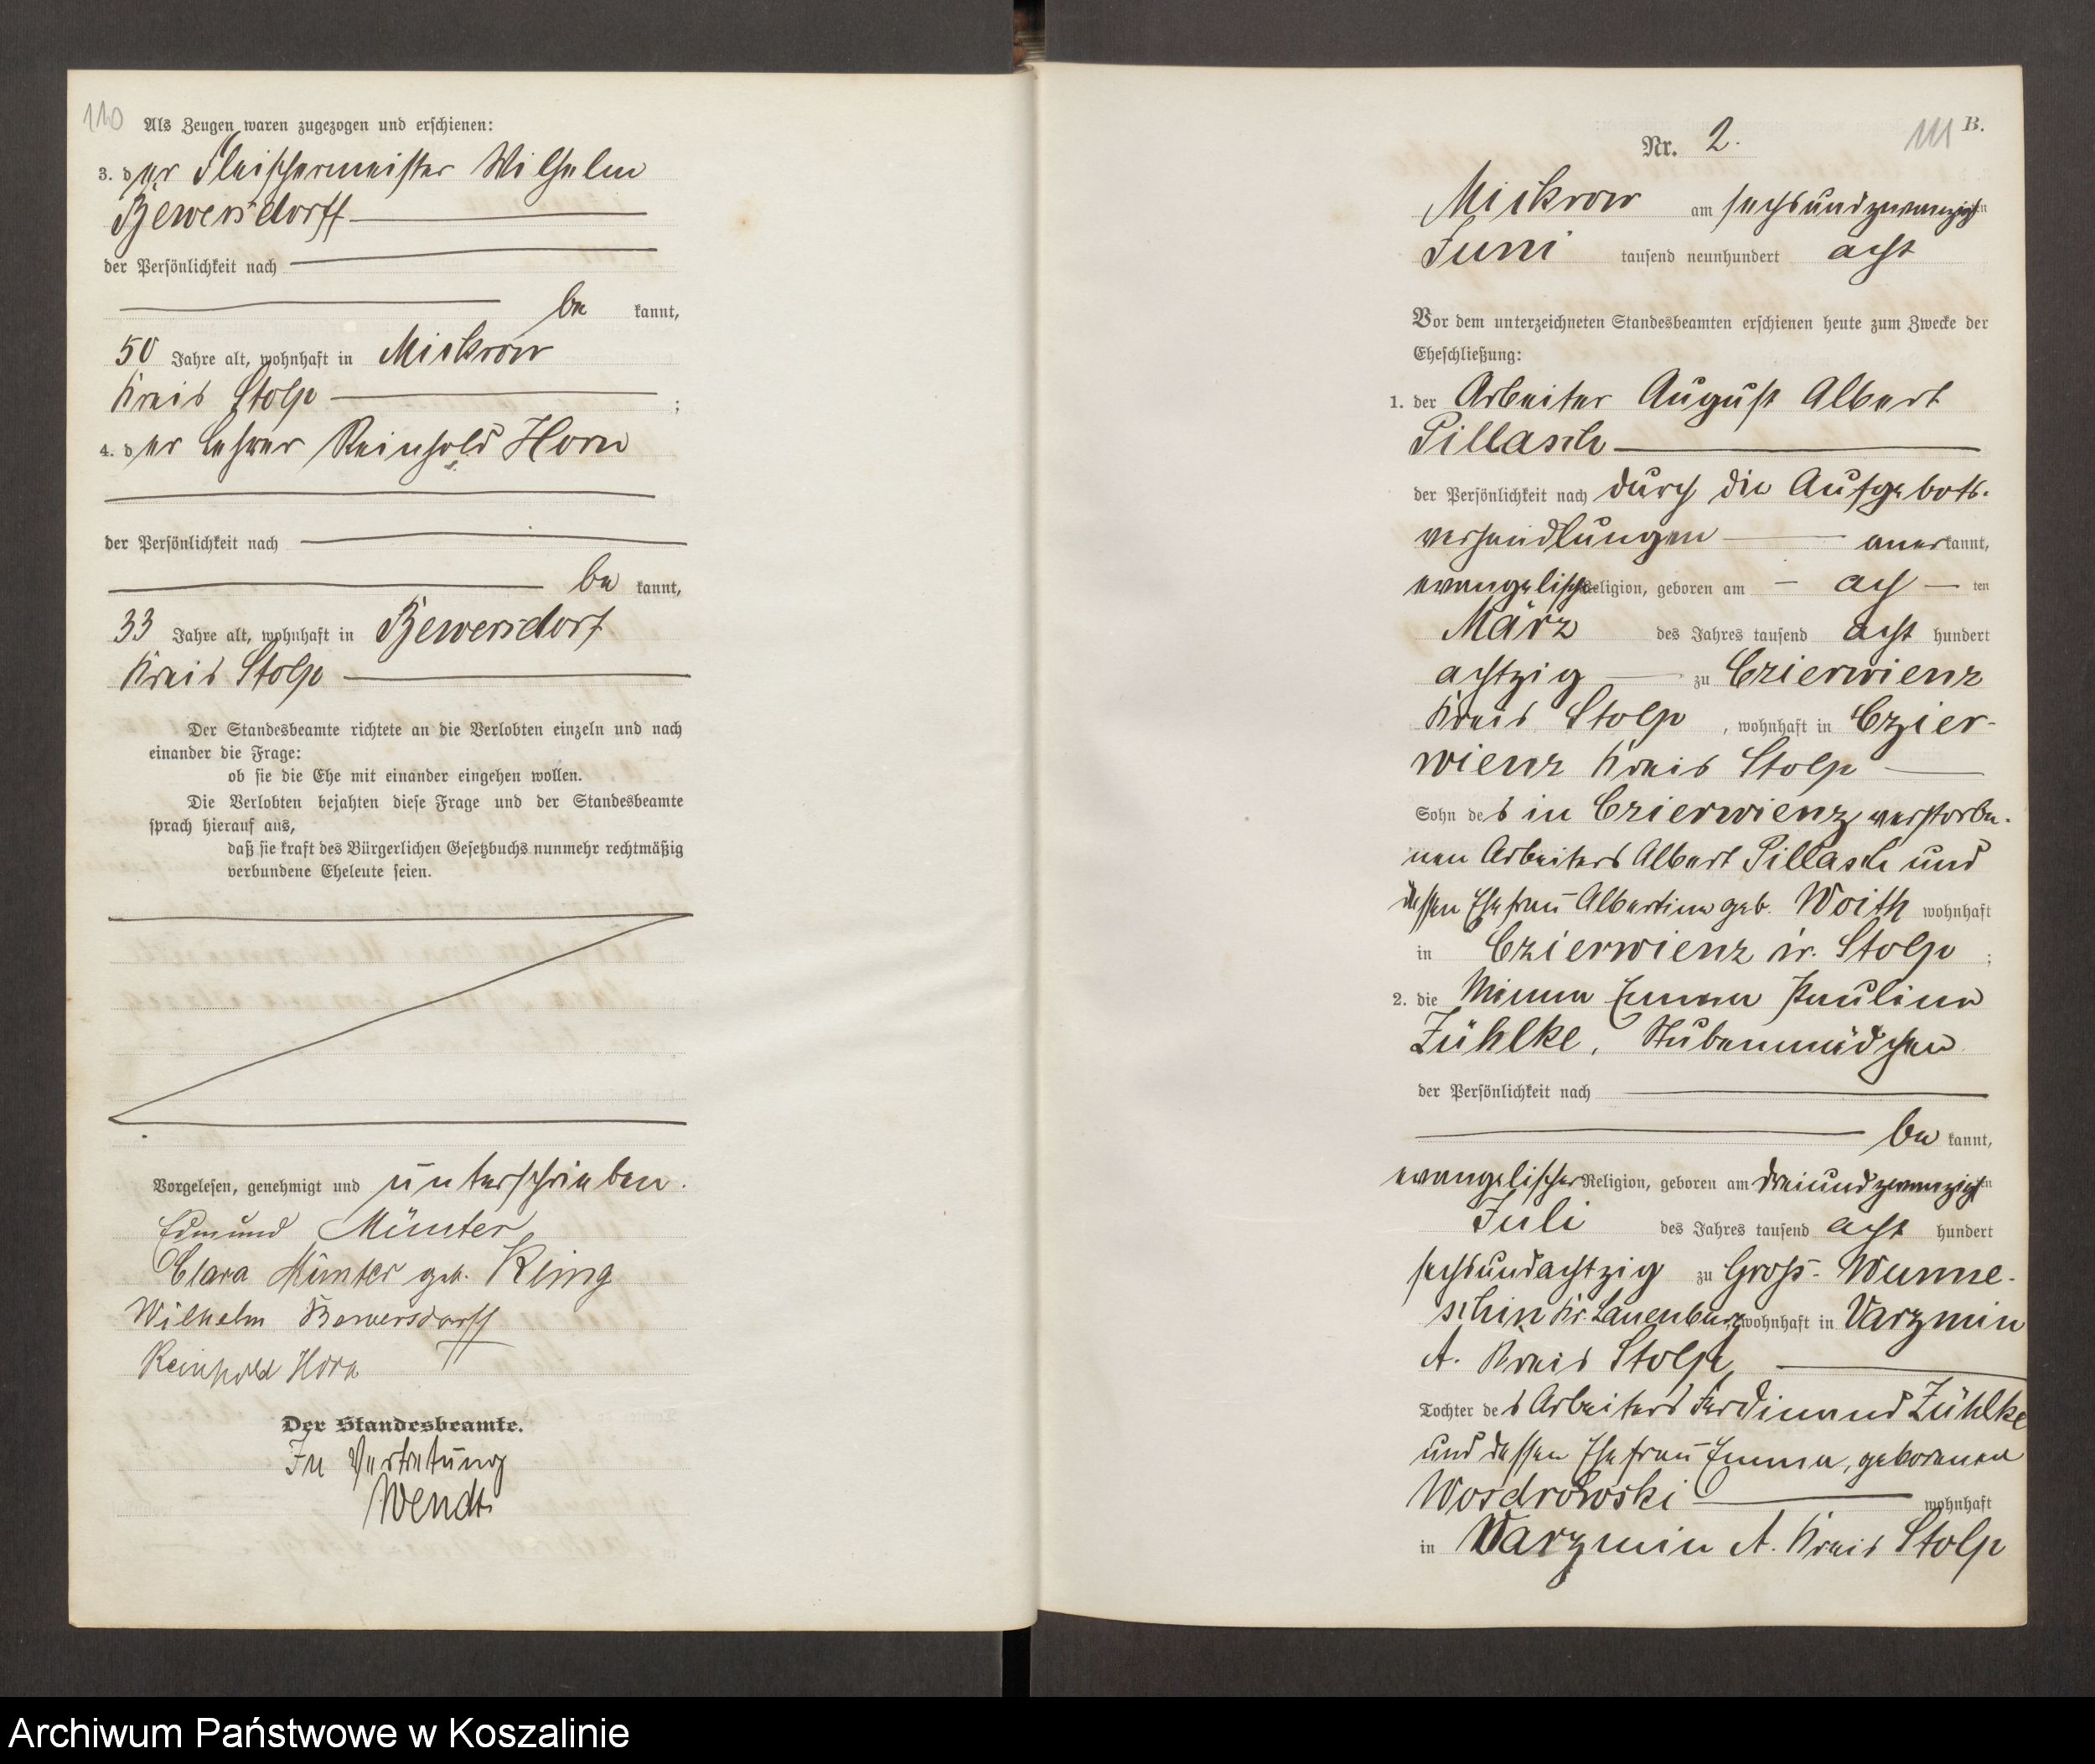 110
Als Zeugen waren zugezogen und erschienen:
3. der Fleischermeister Wilhelm
Bewersdorff
der Persönlichkeit nach
be kannt,
50 Jahre alt, wohnhaft in Mickrow
Kreis Stolp ;
4. der Lehrer Reinhold Horn
der Persönlichkeit nach
be kannt,
33 Jahre alt, wohnhaft in Bewersdorf
Kreis Stolp
Der Standesbeamte richtete an die Verlobten einzeln und nach
einander die Frage:
ob sie die Ehe mit einander eingehen wollen.
Die Verlobten bejahten diese Frage und der Standesbeamte
sprach hierauf aus,
daß sie kraft des Bürgerlichen Gesetzbuchs nunmehr rechtmäßig
verbundene Eheleute seien.
Vorgelesen, genehmigt und unterschrieben.
Edmund Münter
Clara Münter geb. Kling
Wilhelm Bewersdorff
Reinhold Horn
Der Standesbeamte.
In Vertretung
Wendt
111 B.
Nr. 2.
Mickrow am sechsundzwanzigsten
Juni tausend neunhundert acht
Vor dem unterzeichneten Standesbeamten erschienen heute zum Zwecke der
Eheschließung:
1. der Arbeiter August Albert
Pillasch
der Persönlichkeit nach durch die Aufgebots-
verhandlungen anerkannt,
evangelischer Religion, geboren am – ach – ten
März des Jahres tausend acht hundert
achtzig zu Czierwienz
Kreis Stolp, wohnhaft in Czier-
wienz Kreis Stolp
Sohn des in Czierwienz verstorbe-
nen Arbeiters Albert Pillasch und
dessen Ehefrau Albertine geb. Woith wohnhaft
in Czierwienz Kr. Stolp ;
2. die Minna Emma Pauline
Zühlke, Stubenmädchen
der Persönlichkeit nach
be kannt,
evangelischer Religion, geboren am dreiundzwanzigsten
Juli des Jahres tausend acht hundert
sechsundachtzig zu Gross-Wunne-
schin Kr. Lauenburg, wohnhaft in Varzmin
A. Kreis Stolp,
Tochter des Arbeiters Ferdinand Zühlke
und dessen Ehefrau Emma, geborenen
Wosdrowski wohnhaft
in Warzmin A. Kreis Stolp
Archiwum Państwowe w Koszalinie